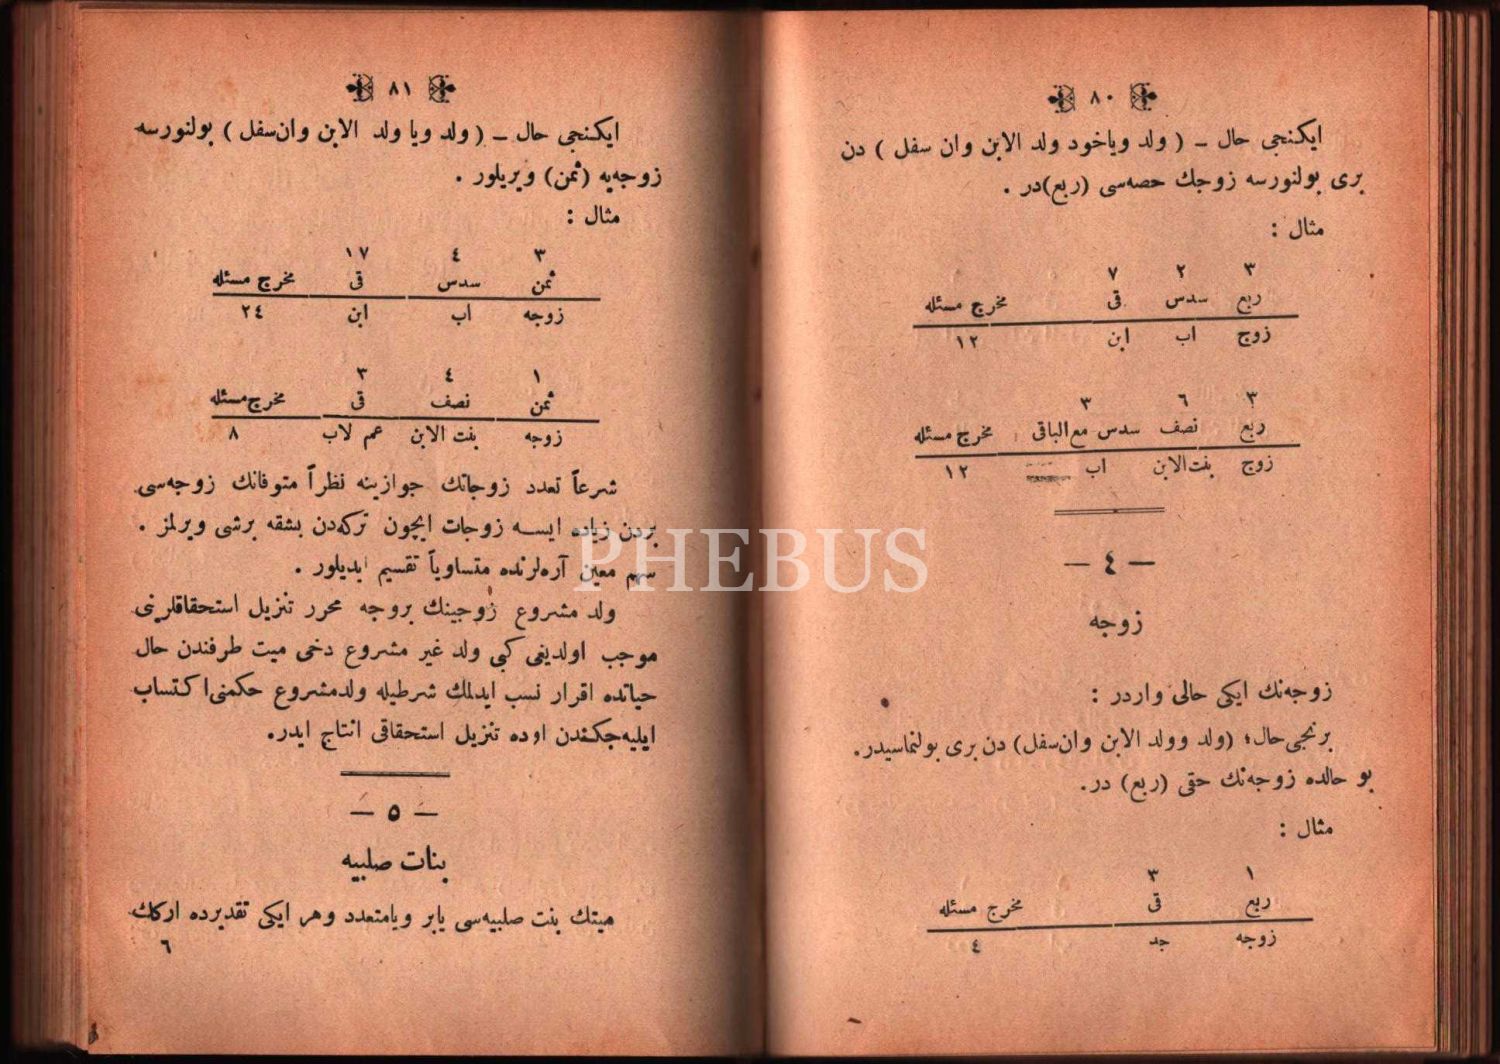 ٨٠
ايكنجى حال ــ ( ولد وياخود ولد الابن وان سفل ) دن
برى بولنورسه زوجك حصه‌سى (ربع)در .
مثال :
٣ ٢ ٧
ربع سدس قى مخرج مسئله
زوج اب ابن ١٢
٣ ٦ ٣
ربع نصف سدس مع‌الباقى مخرج مسئله
زوج بنت‌الابن اب ١٢
— ٤ —
زوجه
زوجه‌نك ايكى حالى واردر :
برنجى‌حال؛ (ولد وولد الابن وان‌سفل) دن برى بولنماسيدر.
بو حالده زوجه‌نك حقى (ربع) در.
مثال :
١ ٣
ربع قى مخرج مسئله
زوجه جد ٤
٨١
ايكنجى حال ــ ( ولد ويا ولد الابن وان‌سفل ) بولنورسه
زوجه‌يه (ثمن) ويريلور .
مثال :
٣ ٤ ١٧
ثمن سدس قى مخرج مسئله
زوجه اب ابن ٢٤
١ ٤ ٣
ثمن نصف قى مخرج‌مسئله
زوجه بنت الابن عم لاب ٨
شرعاً تعدد زوجاتك جوازينه نظراً متوفانك زوجه‌سى
بردن زياده ايسه زوجات ايچون تركه‌دن بشقه برشى ويرلمز .
سهم معين آره‌لرنده متساوياً تقسيم ايديلور .
ولد مشروع زوجينك بروجه محرر تنزيل استحقاقلرينى
موجب اولديغى كبى ولد غير مشروع دخى ميت طرفندن حال
حياتده اقرار نسب ايدلمك شرطيله ولدمشروع حكمنى‌اكتساب
ايليه‌جكندن اوده تنزيل استحقاقى انتاج ايدر.
— ٥ —
بنات صلبيه
ميتك بنت صلبيه‌سى يابر ويامتعدد وهر ايكى تقديرده اركك
٦
PHEBUS